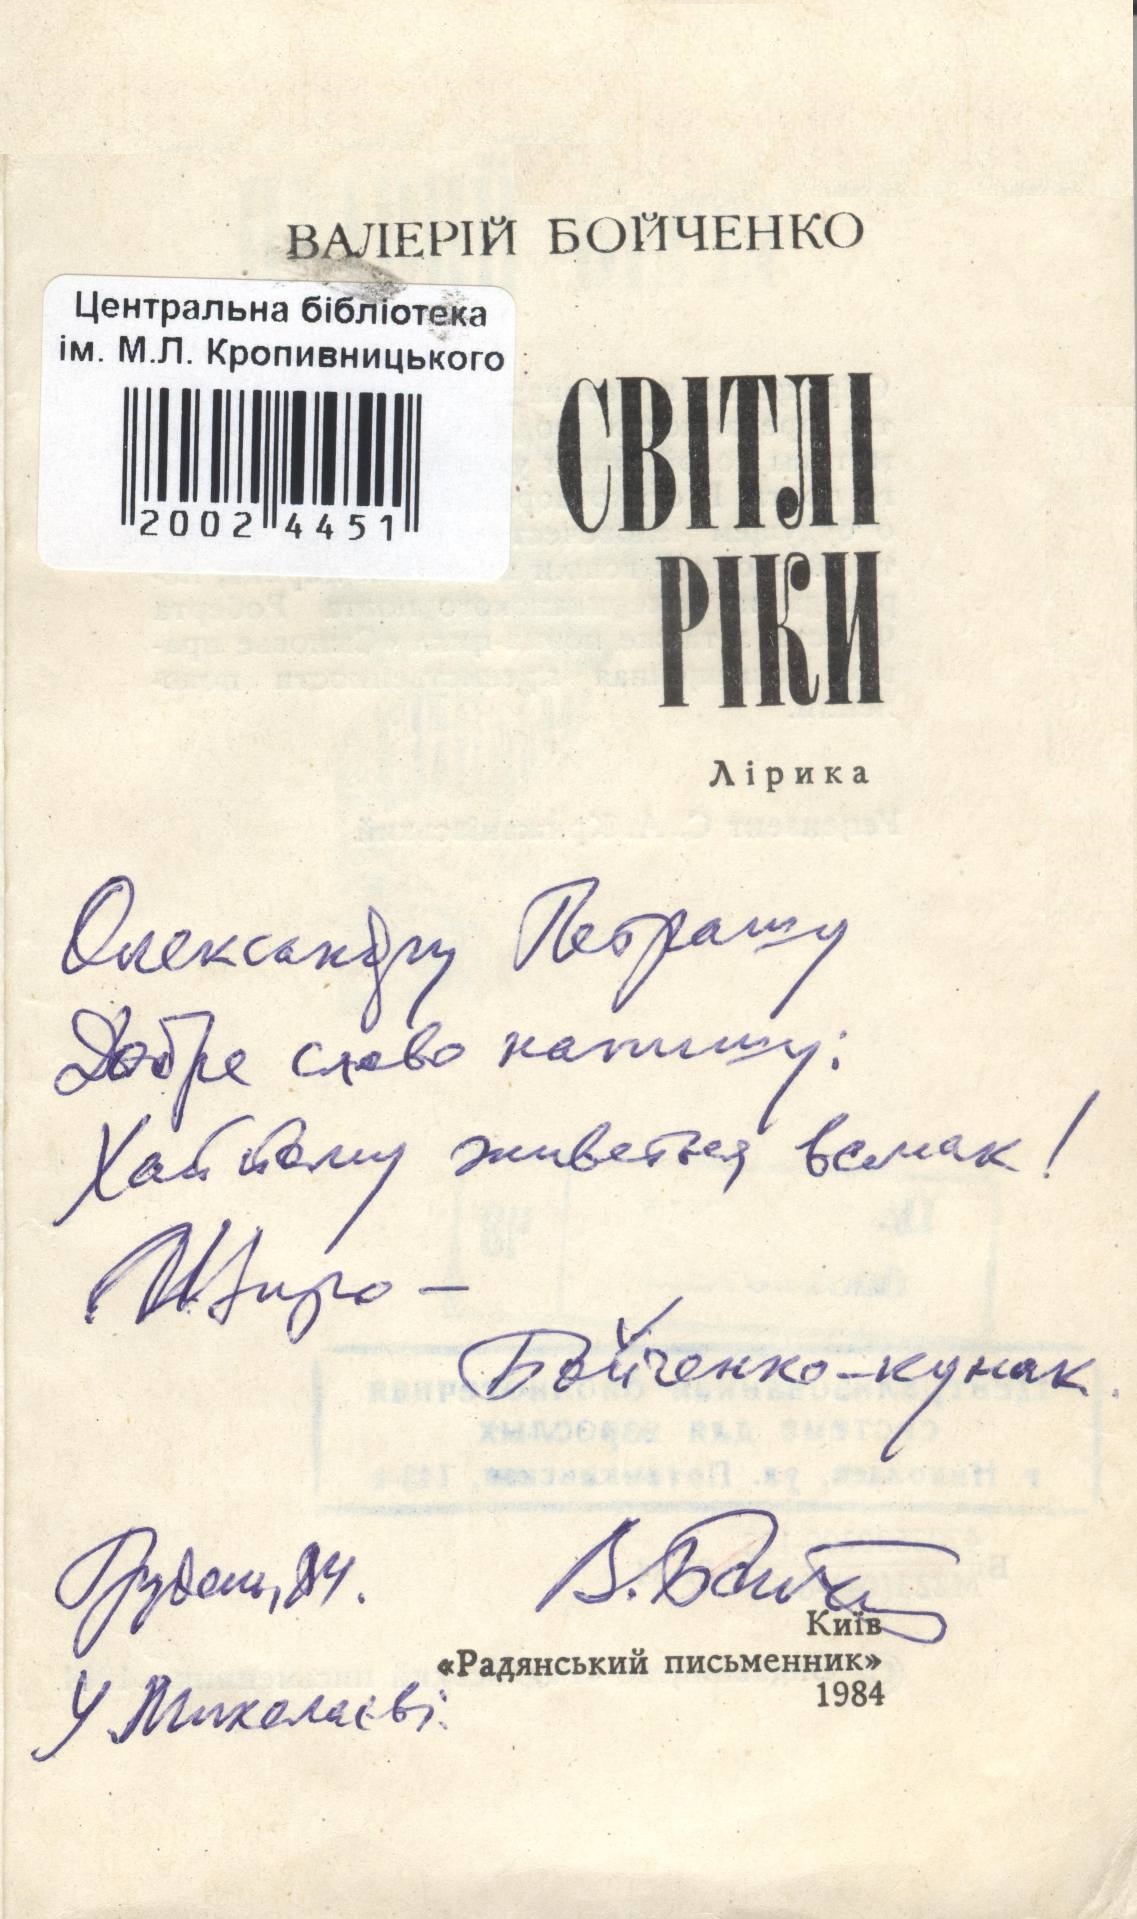 ВАЛЕРІЙ БОЙЧЕНКО
Центральна бібліотека
ім. М.Л. Кропивницького
20024451
СВІТЛІ
РІКИ
Лірика
Олександру Петрашу
Добре слово напишу:
Хай йому живеться всмак!
Щиро –
Бойченко-кунак.
Грудень, 84.
В. Бойч
У Миколаєві.
Київ
«Радянський письменник»
1984